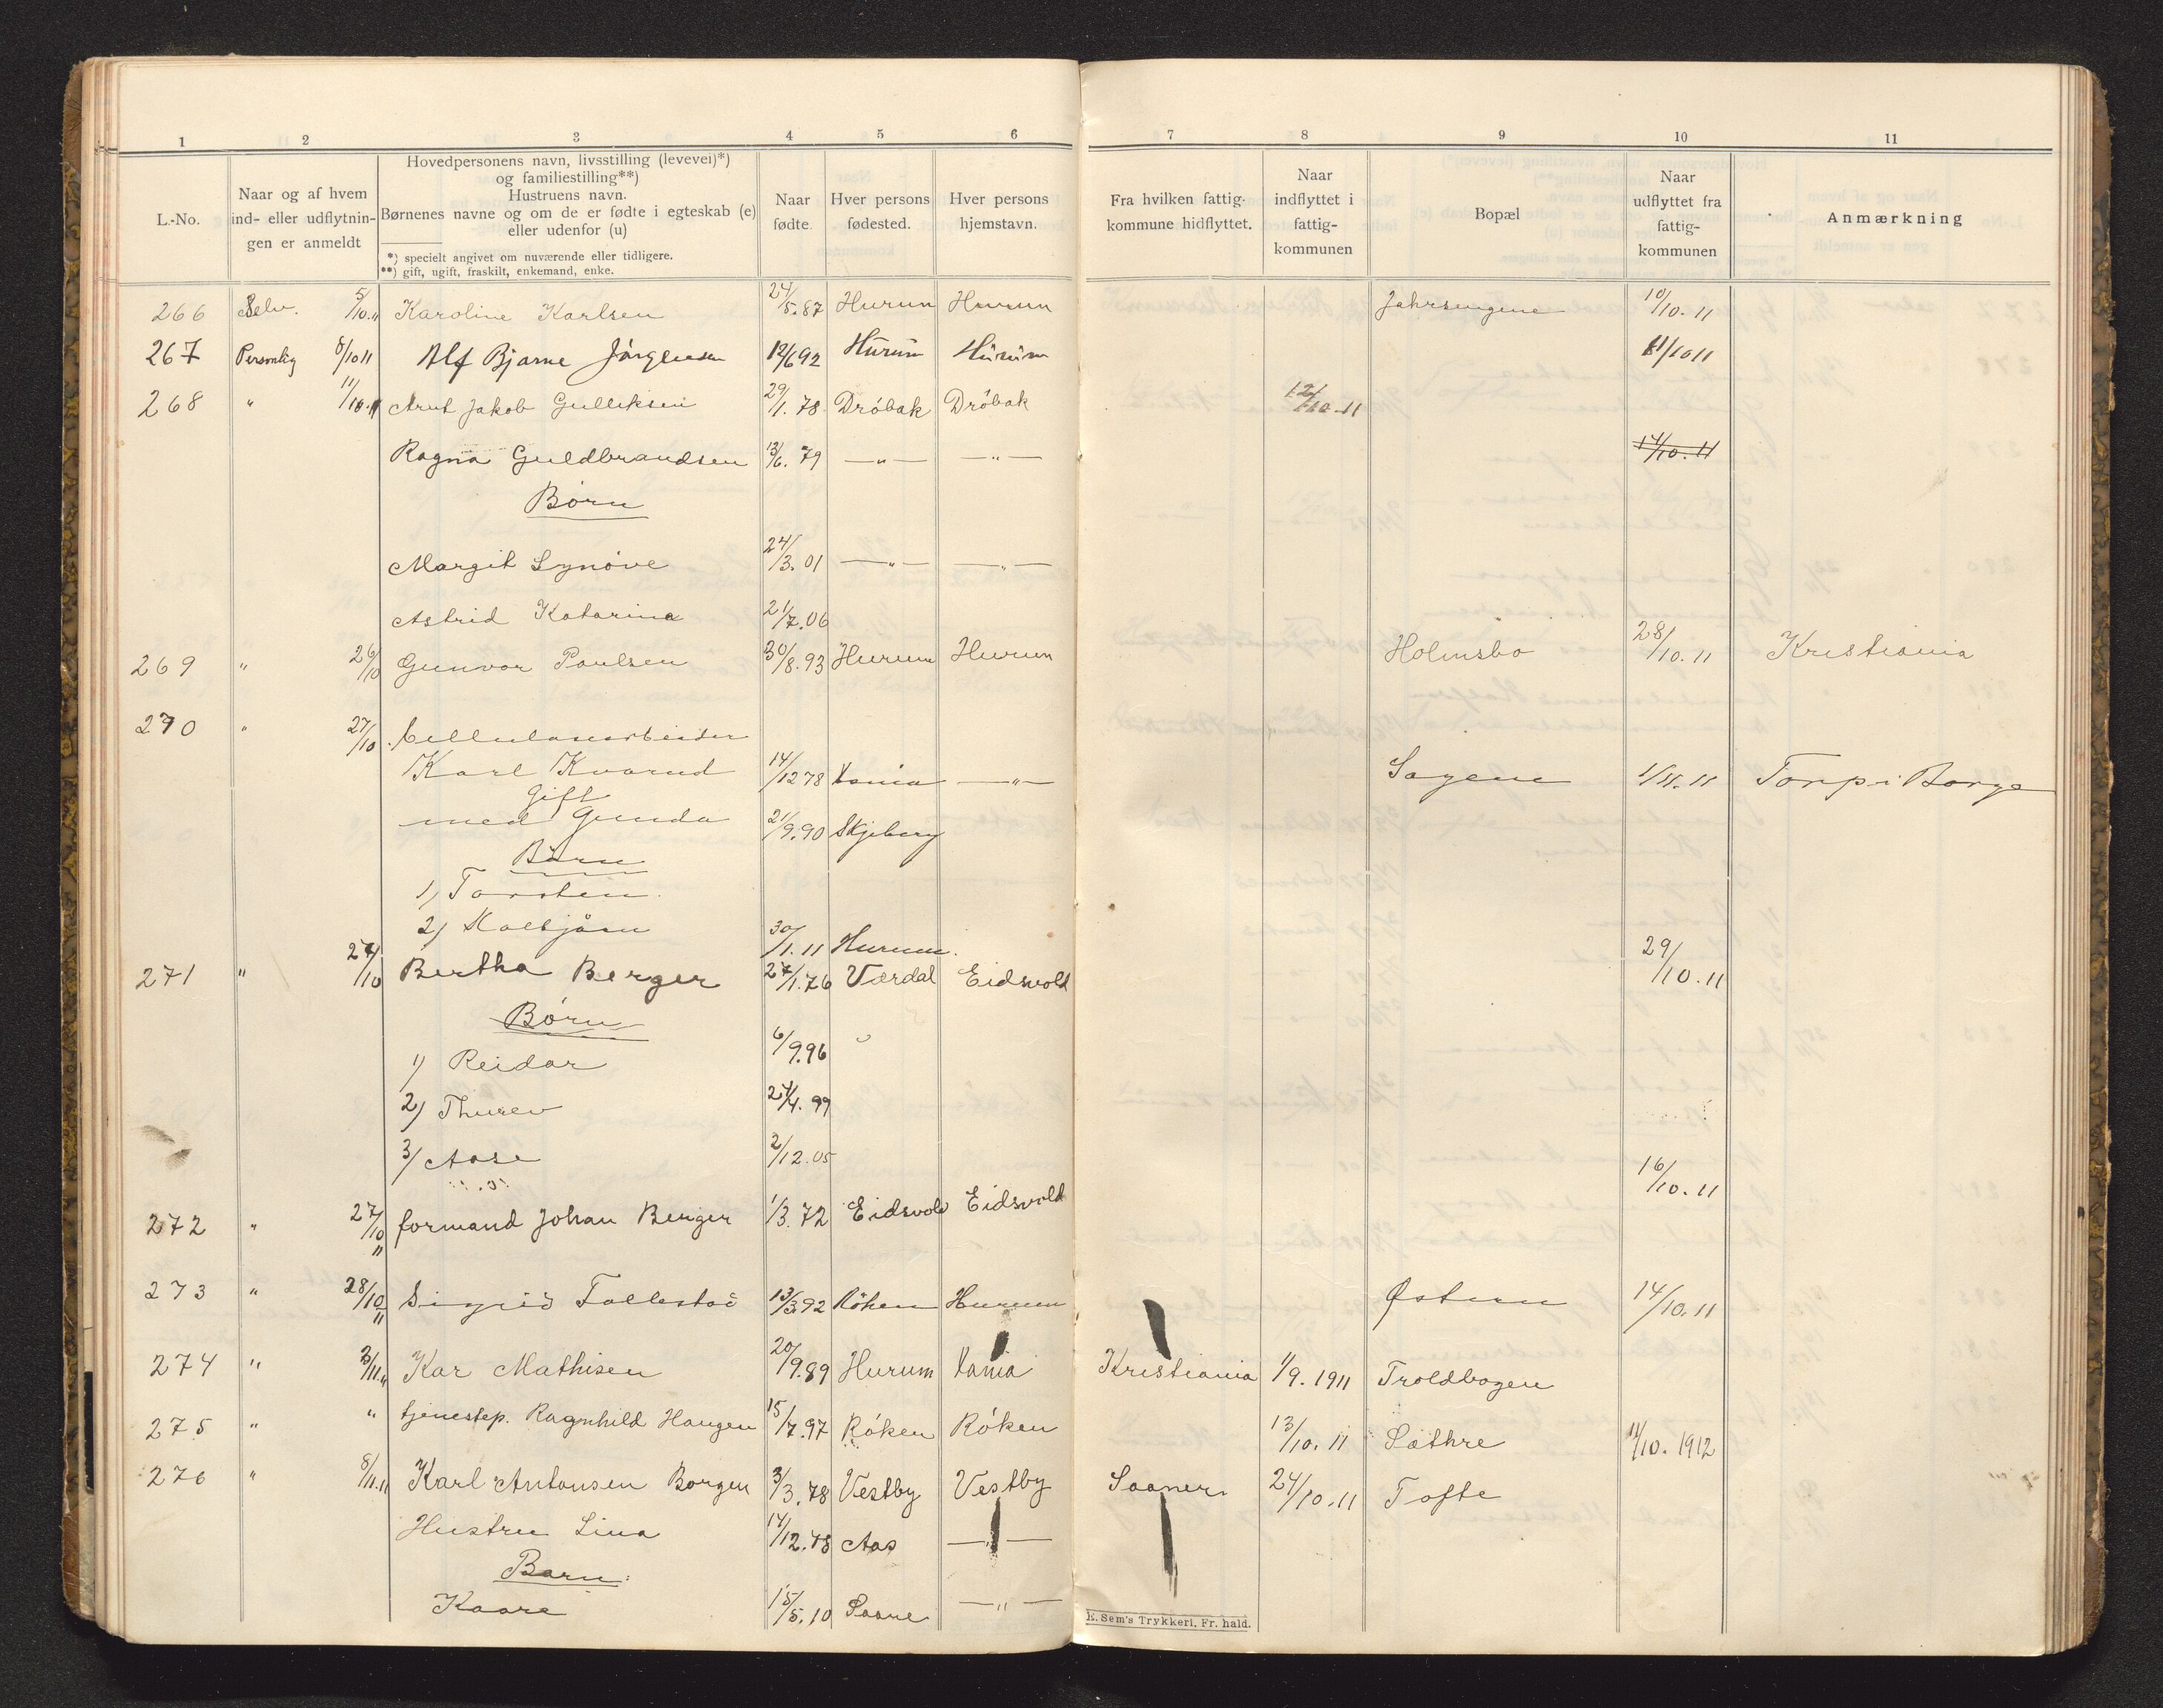 1 2 3 4 5 6 7 8 9 10 11
L.-No.
Naar og af hvem
ind- eller udflytnin-
gen er anmeldt
Hovedpersonens navn, livsstilling (levevei)*)
og familiestilling**)
Hustruens navn.
Børnenes navne og om de er fødte i egteskab (e)
eller udenfor (u)
*) specielt angivet om nuværende eller tidligere.
**) gift, ugift, fraskilt, enkemand, enke.
Naar
fødte.
Hver persons
fødested.
Hver persons
hjemstavn.
Fra hvilken fattig-
kommune hidflyttet.
Naar
indflyttet i
fattig-
kommunen
Bopæl
Naar
udflyttet fra
fattig-
kommunen
Anmærkning
266 Selv. 5/10.11 Karoline Karlsen 24/5.87 Hurum Hurum Jahrsengene 10/10.11
267 Personlig 8/10 11 Alf Bjarne Jörgensen 12/6 92 Hurum Hurum 11/10 11
268 " 11/10.11 Arnt Jakob Gulliksen 29/1.78 Dröbak Dröbak 12/10-11
Ragna Guldbrandsen 13/6.79 —"— —"— 14/10.11
Börn
Margit Synöve 24/3.01 —"— —"—
Astrid Katarina 21/7.06
269 " 26/10 Gunvor Paulsen 30/8.93 Hurum Hurum Holmsbo 28/10.11 Kristiania
270 " 27/10 Cellulosearbeider
Karl Kvarud 14/12 78 Xania —"— Sagene 1/11.11 Torp i Borge
gift
med Gunda 21/9.90 Skjeberg
Börn
1) Torsten
2) Kolbjörn 30/1.11 Hurum.
271 " 27/10 Bertha Berger 27/1.76 Værdal Eidsvold 29/10.11
Börn
1) Reidar 6/9.96 "
2) Thurev 24/4.99
3) Aase 2/12.05
272 " 27/10 11 formand Johan Berger 1/3.72 Eidsvold Eidsvold 16/10.11
273 " 28/10 11 Sigrid Follestad 13/3 92 Röken Hurum Østern 14/10.11
274 " 2/11.11 Kar Mathisen 20/9.89 Hurum Xania Kristiania 1/9.1911 Troldbogen
275 " " tjenestep. Ragnhild Haugen 15/7.97 Röken Röken 13/10.11 Sæthre 11/10.1912
276 " 8/11.11 Karl Antonsen Borgen 3/3.78 Vestby Vestby Sooner. 24/10.11 Tofte
Hustru Lina 14/12.78 Aas —"—
Barn:
Kaare 15/5.10 Soone —"—
E. Sem's Trykkeri, Fr. hald.